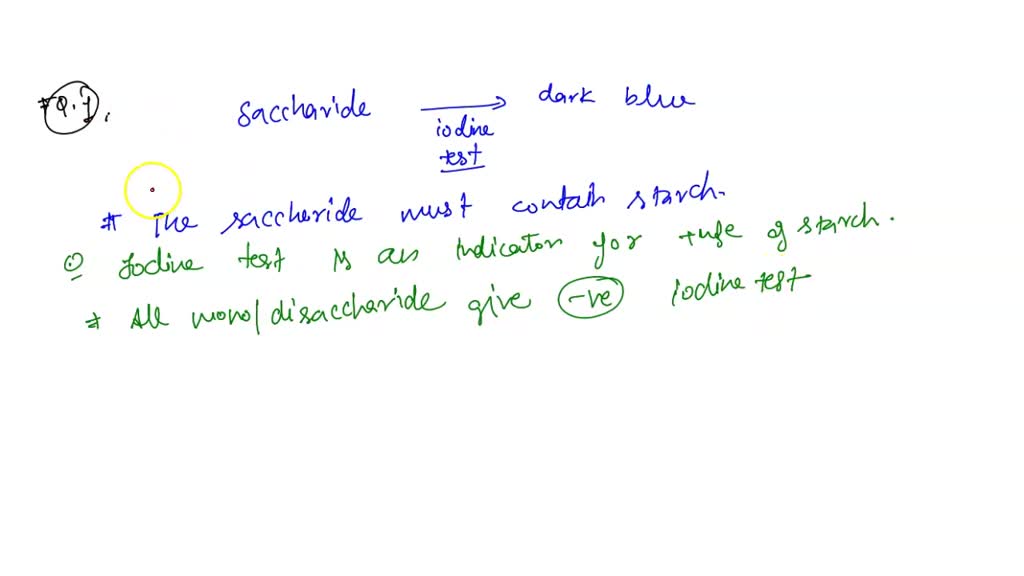 Q.1.
saccharide → dark blue
iodine
test
# The saccharide must contain starch.
Iodine test is an indicator for of starch.
* All mono/disaccharide give -ve iodine test